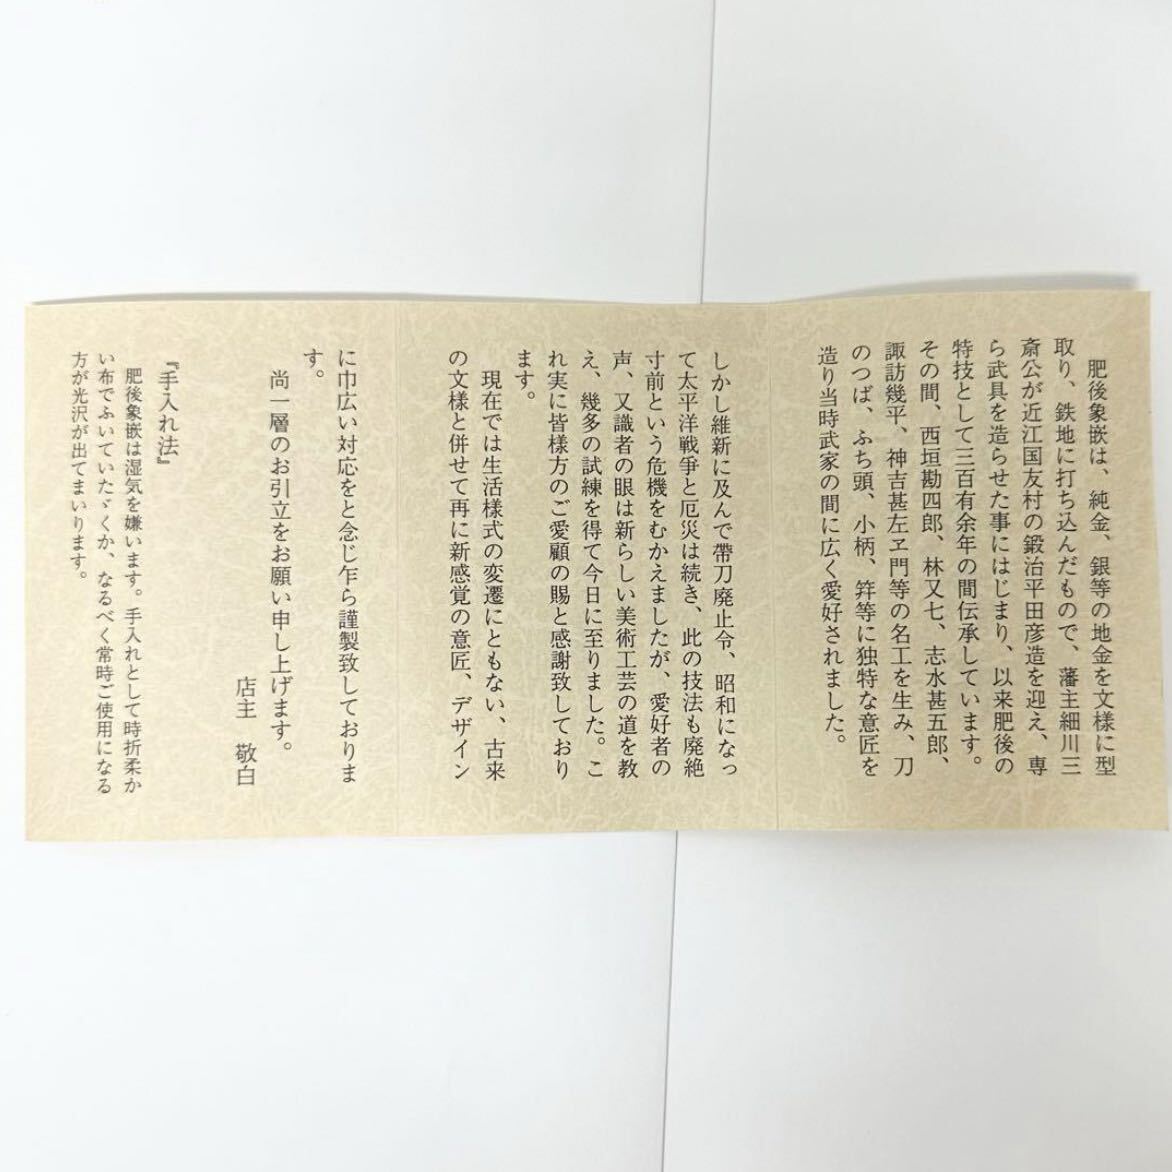 肥後象嵌は、純金、銀等の地金を文様に型
取り、鉄地に打ち込んだもので、藩主細川三
斎公が近江国友村の鍛治平田彦造を迎え、専
ら武具を造らせた事にはじまり、以来肥後の
特技として三百有余年の間伝承しています。
その間、西垣勘四郎、林又七、志水甚五郎、
諏訪幾平、神吉甚左ヱ門等の名工を生み、刀
のつば、ふち頭、小柄、笄等に独特な意匠を
造り当時武家の間に広く愛好されました。
しかし維新に及んで帯刀廃止令、昭和になっ
て太平洋戦争と厄災は続き、此の技法も廃絶
寸前という危機をむかえましたが、愛好者の
声、又識者の眼は新らしい美術工芸の道を教
え、幾多の試練を得て今日に至りました。こ
れ実に皆様方のご愛顧の賜と感謝致しており
ます。
現在では生活様式の変遷にともない、古来
の文様と併せて再に新感覚の意匠、デザイン
に巾広い対応をと念じ乍ら謹製致しておりま
す。
尚一層のお引立をお願い申し上げます。
店主 敬白
『手入れ法』
肥後象嵌は湿気を嫌います。手入れとして時折柔か
い布でふいていたゞくか、なるべく常時ご使用になる
方が光沢が出てまいります。